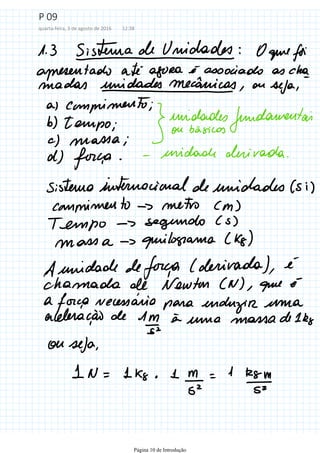 P 09
quarta-feira, 3 de agosto de 2016 12:38
1.3 Sistema de Unidades: O que foi
apresentado até agora é associado as cha
madas unidades mecânicas, ou seja,
a) comprimento;
b) tempo;
c) massa;
unidades fundamentais
ou básicas
d) força. - unidade derivada.
Sistema internacional de unidades (SI)
comprimento -> metro (m)
Tempo -> segundo (s)
massa -> quilograma (kg)
A unidade de força (derivada), é
chamada de Newton (N), que é
a força necessário para induzir uma
aceleração de 1m/s² à uma massa de 1kg
ou seja,
1N = 1kg . 1 m/s² = 1 kg-m/s²
Página 10 de Introdução